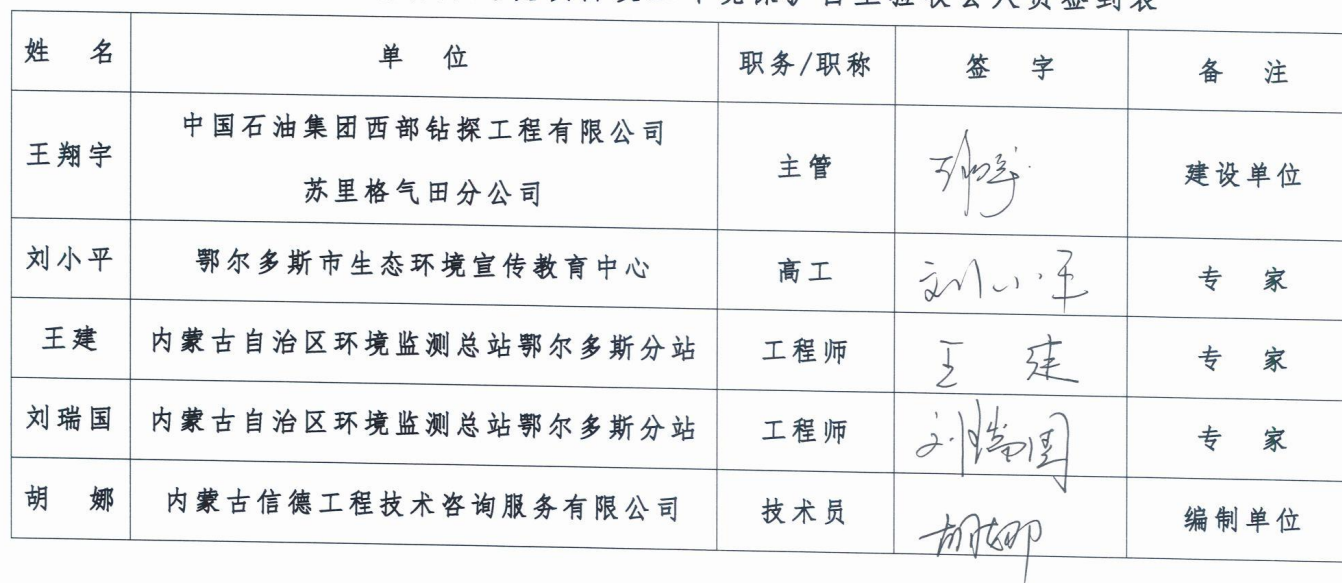 环境保护自主验收会人员签到表
姓 名 单 位 职务/职称 签 字 备 注
王翔宇 中国石油集团西部钻探工程有限公司 主管 建设单位
苏里格气田分公司
刘小平 鄂尔多斯市生态环境宣传教育中心 高工 刘小平 专 家
王建 内蒙古自治区环境监测总站鄂尔多斯分站 工程师 王建 专 家
刘瑞国 内蒙古自治区环境监测总站鄂尔多斯分站 工程师 刘瑞国 专 家
胡 娜 内蒙古信德工程技术咨询服务有限公司 技术员 胡娜 编制单位